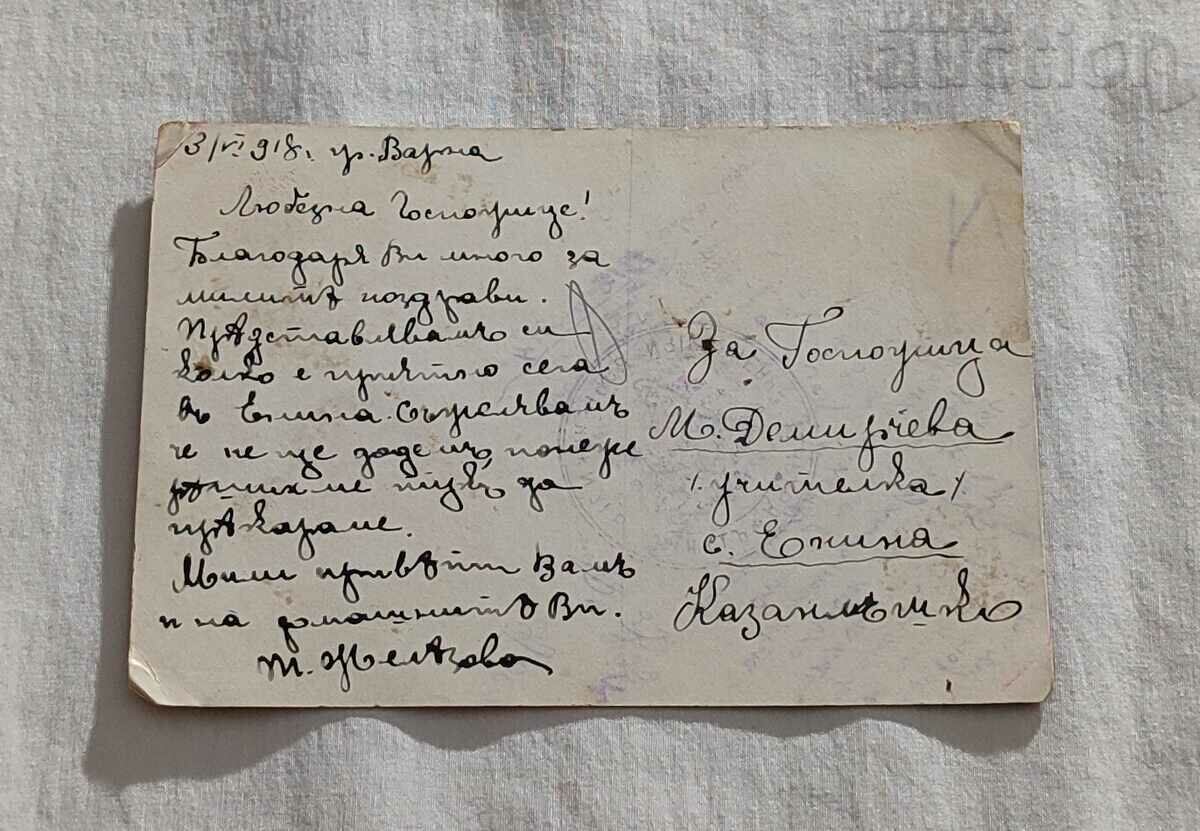 3/VI 918. гр. Варна
Любезна Госпожице!
Благодаря Ви много за
милитѣ поздрави.
Прѣдставлявамъ си
колко е приятно сега
въ Енина. Съжелявамъ
че не ще додемъ, понеже
рѣшихме тукъ да
прѣкараме.
Мили привѣти Вамъ
и на домашнитѣ Ви.
Т. Желѣзова
За Госпожица
М. Демирчева
/. учителка /.
с. Енина
Казанлъшко